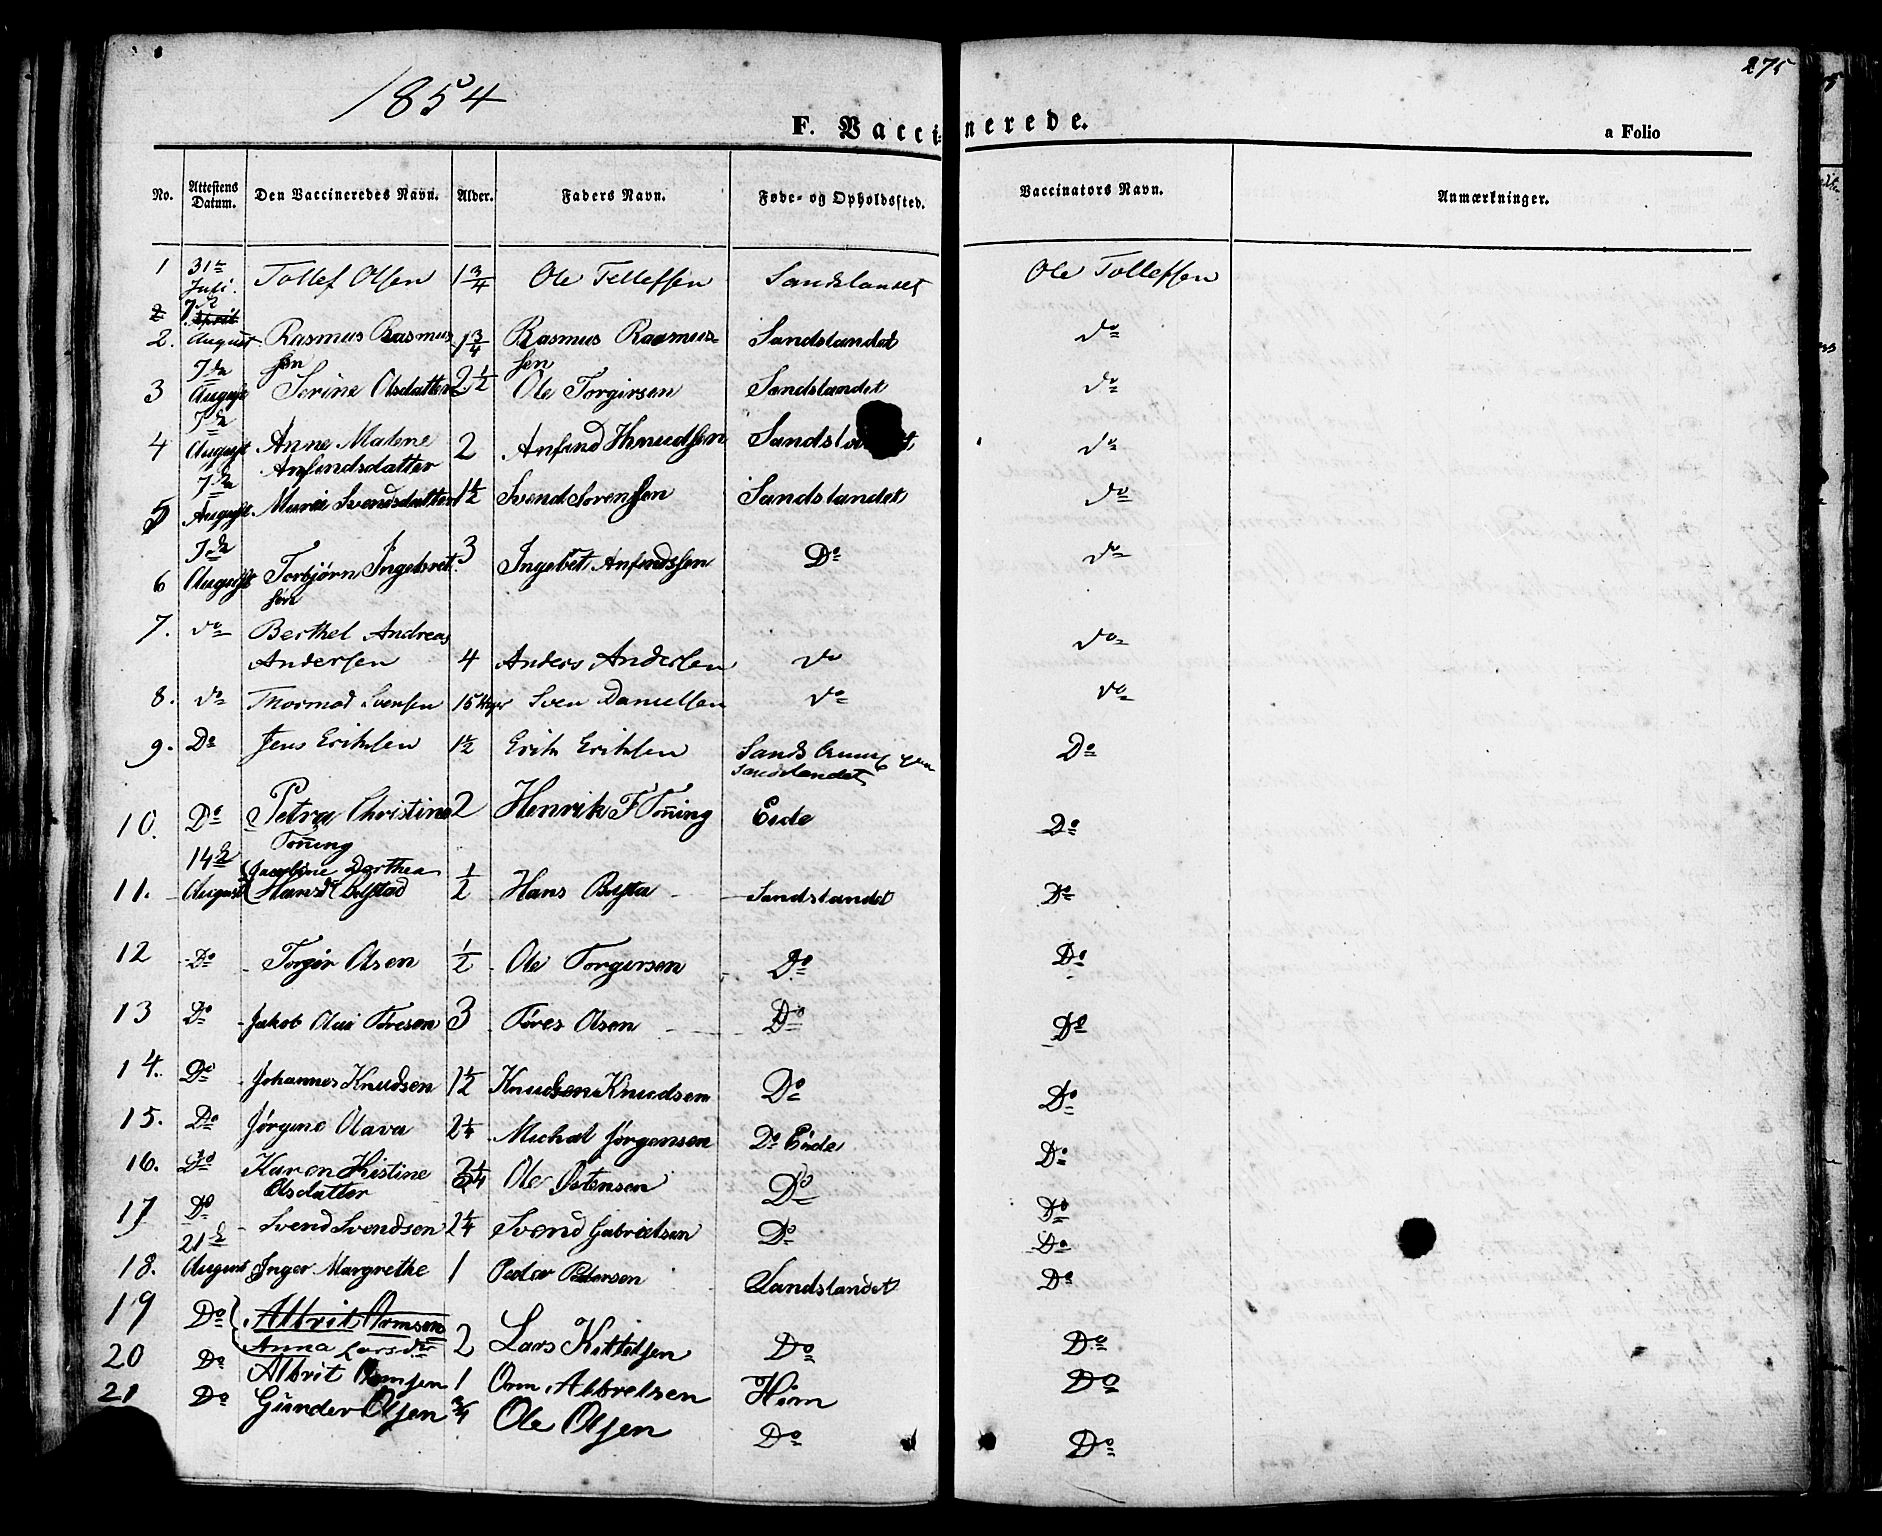 275
1854
F. Vaccinerede.
a Folio
No. Attestens Datum. Den Vaccineredes Navn. Alder. Faders Navn. Føde- og Opholdssted. Vaccinators Navn. Anmærkninger.
1 31te Juli. Tollef Olsen 1 3/4 Ole Tellefsen Sandslandet Ole Tollefsen
2. 7de August Rasmus Rasmussen 1 3/4 Rasmus Rasmussen Sandslandet do
3 7de August Serine Olsdatter 2 1/2 Ole Torgirsen Sandslandet do
4 7de August Anne Malene Anfindsdatter 2 Anfind Knudsen Sandslandet do
5 7de August Maren Svendsdatter 1 1/2 Svend Sorensen Sandslandet do
6 7de August Torbjørn Ingebretsen 3 Ingebret Anfindssen Do do
7. do Berthel Andreas Andersen 4 Anders Andersen do do
8. do Thormod Svensen 15 Sven Danielsen do do
9. Do Jens Eriksen 1 1/2 Erik Eriksen Sands Sandslandet Do
10. Do Petra Christine Toñing 2 Henrik F Toñing Eide Do
11. 14de August Dorthea Hansdr 1/2 Hans Sandslandet Do
12 Do Torgir Olsen 1/2 Ole Torgersen Do Do
13 Do Jakob Olai Toresen 3 Tores Olsen Do Do
14. Do Johannes Knudsen 1 1/2 Knudsen Knudsen Do Do
15. Do Jørgine Olava 2 1/4 Michal Jørgensen Do Eide Do
16. Do Karen Kistine Olsdatter 1/4 Ole Ostensen Do Do
17 Do Svend Svendsen 2 1/4 Svend Gabrielsen Do Do
18. 21de August Inger Margrethe 1 Peder Pedersen Sandslandet Do
19 Do Albrit Ormsen Anna Larsdr 2 Lars Kittelsen Do Do
20 Do Albrit Ormsen 1 Orm Albretsen Him Do
21 Do Gunder Olsen 3/4 Ole Olsen Do Do